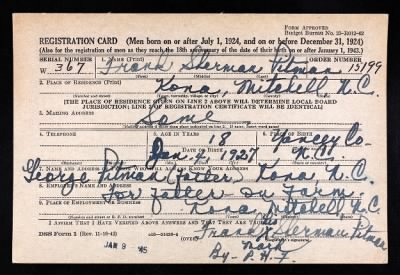 FORM APPROVED
Budget Bureau No. 33-R012-42
REGISTRATION CARD (Men born on or after July 1, 1924, and on or before December 31, 1924)
(Also for the registration of men as they reach the 18th anniversary of the date of their birth on or after January 1, 1943.)
SERIAL NUMBER 1. NAME (Print)
W 367 Frank Sherman Pitman 15199
2. PLACE OF RESIDENCE (Print)
Kona, Mitchell, N.C.
[THE PLACE OF RESIDENCE GIVEN ON LINE 2 ABOVE WILL DETERMINE LOCAL BOARD
JURISDICTION; LINE 2 OF REGISTRATION CERTIFICATE WILL BE IDENTICAL]
3. MAILING ADDRESS
Same
4. TELEPHONE 5. AGE IN YEARS 6. PLACE OF BIRTH
18 Yancey Co.
DATE OF BIRTH
Jan. 2, 1927 N.C.
7. NAME AND ADDRESS
George Pitman Father, Kona N.C.
8. EMPLOYER'S NAME AND ADDRESS
For father on farm.
9. PLACE OF EMPLOYMENT OR BUSINESS
Kona Mitchell N.C.
I AFFIRM THAT I HAVE VERIFIED ABOVE ANSWERS AND THAT THEY ARE TRUE.
his
Frank X Sherman Pitman
DSS Form 1 (Rev. 11-16-42)
mark
JAN 9 '45
By- P.H.F.